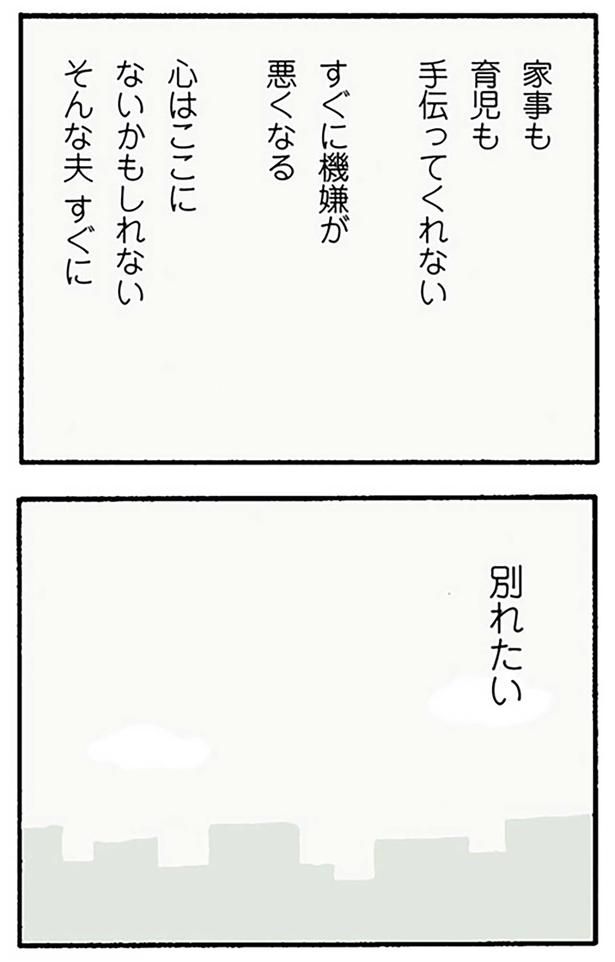 家事も
育児も
手伝ってくれない
すぐに機嫌が
悪くなる
心はここに
ないかもしれない
そんな夫 すぐに
別れたい